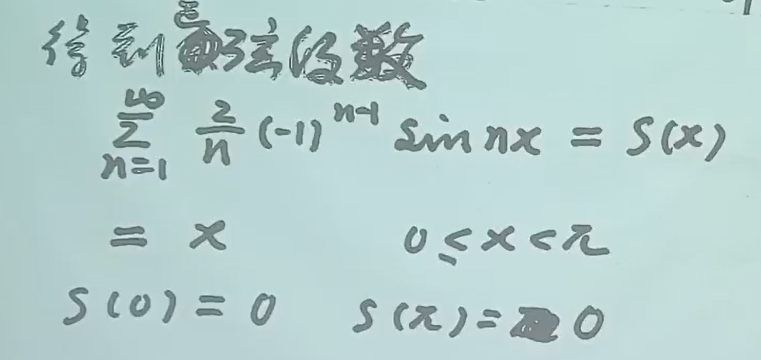 得到正弦级数
∞
∑ 2/n (-1)^{n-1} sin nx = S(x)
n=1
= x 0 ≤ x < π
S(0) = 0 S(π) = 0